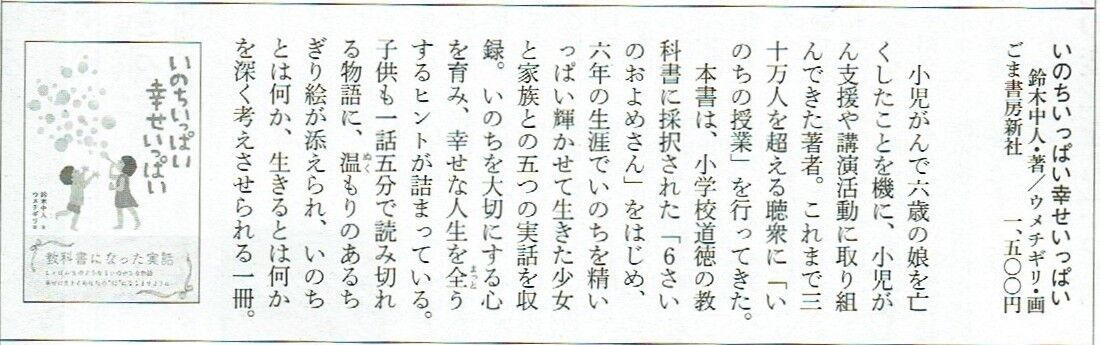 いのちいっぱい幸せいっぱい
鈴木中人・著/ウメチギリ・画
ごま書房新社 一、五〇〇円
小児がんで六歳の娘を亡
くしたことを機に、小児が
ん支援や講演活動に取り組
んできた著者。これまで三
十万人を超える聴衆に「い
のちの授業」を行ってきた。
本書は、小学校道徳の教
科書に採択された「6さい
のおよめさん」をはじめ、
六年の生涯でいのちを精い
っぱい輝かせて生きた少女
と家族との五つの実話を収
録。いのちを大切にする心
を育み、幸せな人生を全う
するヒントが詰まっている。
子供も一話五分で読み切れ
る物語に、温もりのあるち
ぎり絵が添えられ、いのち
とは何か、生きるとは何か
を深く考えさせられる一冊。
まっと
ぬく
いのちいっぱい
幸せいっぱい
鈴木中人 著
ウメチギリ 画
教科書になった実話